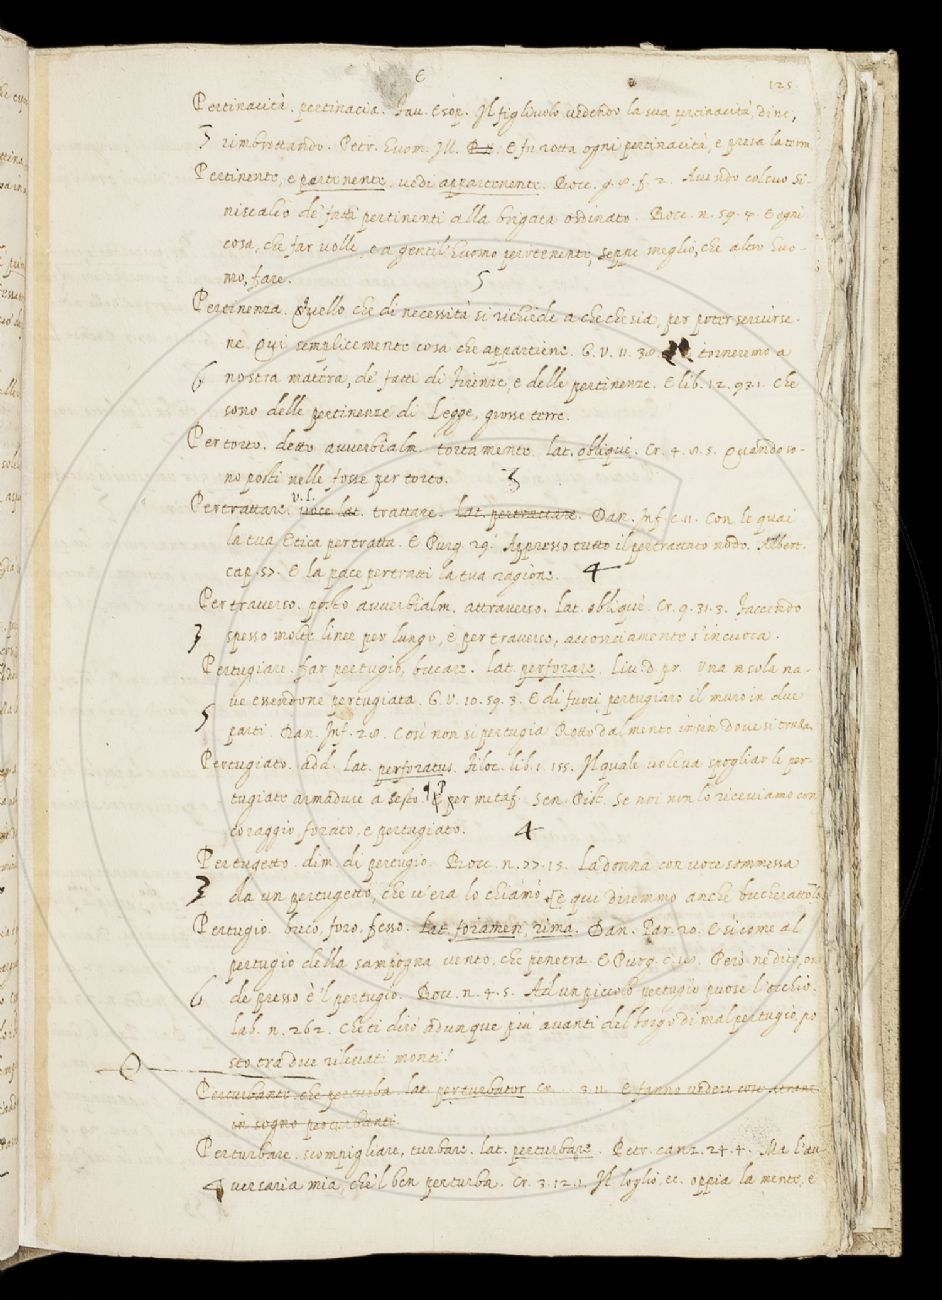 E
125.
Pertinacità. pertinacia. Fav. Esop. Il figlivolo vedendo la sua pertinacità, dice,
5 rimbrottando. Petr. huom. Ill. E fu rotta ogni pertinacità, e presa la terra
Pertinente, e partenente. vedi appartenente. Bocc. g. 8. f. 2. Avendo col suo Si-
niscalco de' fatti pertinenti alla brigata ordinato. Bocc. n. 59. 4. E ogni
cosa, che far volle, e a gentil huomo pertenente, seppe meglio, che altro huo-
mo, fare. 5
Pertinenza. Quello che di necessità si richiede a che che sia, per poter servirse-
ne. Qui semplicemente cosa che appartiene. G. V. 11. 30. torneremo a
6 nostra matera, de' fatti di Firenze, e delle pertinenze. E lib. 12. 93. 1. Che
sono delle pertinenze di Legge, grosse terre.
Per torto. detto avverbialm. tortamente. lat. obliquè. Cr. 4. 8. 5. Quando so-
no posti nelle fosse per torto. 3
v. l.
Pertrattare. voce lat. trattare. lat. pertractare. Dan. Inf. c. 11. Con le quai
la tua Etica pertratta. E Purg. 29. Appresso tutto il pertrattato nodo. Albert.
cap. 57. E la pace pertratti la tua ragione. 4
Per traverso. posto avverbialm. attraverso. lat. obliquè. Cr. 9. 31. 3. Faccendo
3 spesso molte linee per lungo, e per traverso, acconciamente s'incuoca.
Pertugiare. far pertugio, bucare. lat. perforare. Liv. d. pr. Una sola na-
ve essendone pertugiata. G. V. 10. 59. 3. E di fuori pertugiaro il muro in due
5 parti. Dan. Inf. 28. Così non si pertugia Rotto dal mento insin dove si trulla.
Pertugiato. add. lat. perforatus. Filoc. lib. 1. 155. Il quale voleva spogliar le per-
tugiate armadure a Sesto. ¶ per metaf. Sen. Pist. Se noi non lo riceviamo con
coraggio forato, e pertugiato. 4
Pertugetto. dim. di pertugio. Bocc. n. 77. 15. La donna con voce sommessa
3 da un pertugetto, che v'era lo chiamò [e qui diremmo anche bucherattolo
Pertugio. buco, foro, fesso. Lat. foramen, rima. Dan. Par. 20. E sì come al
pertugio della sampogna vento, che penetra. E Purg. c. 18. Però ne dite, on-
6 de presso è 'l pertugio. Bocc. n. 4. 5. Ad un piccolo pertugio puose l'occhio.
Lab. n. 262. Che ti dirò adunque più avanti del borgo di mal pertugio, po
sto tra due rilevati monti!
Perturbante. che perturba. lat. perturbator Cr. 3. 11. E fanno vedere cose
in sogno perturbanti.
Perturbare. scompigliare, turbare. lat. perturbare. Petr. canz. 24. 4. Ma l'av-
4 versaria mia, che 'l ben perturba. Cr. 3. 12. 1. Il loglio, ec. oppia la mente, e